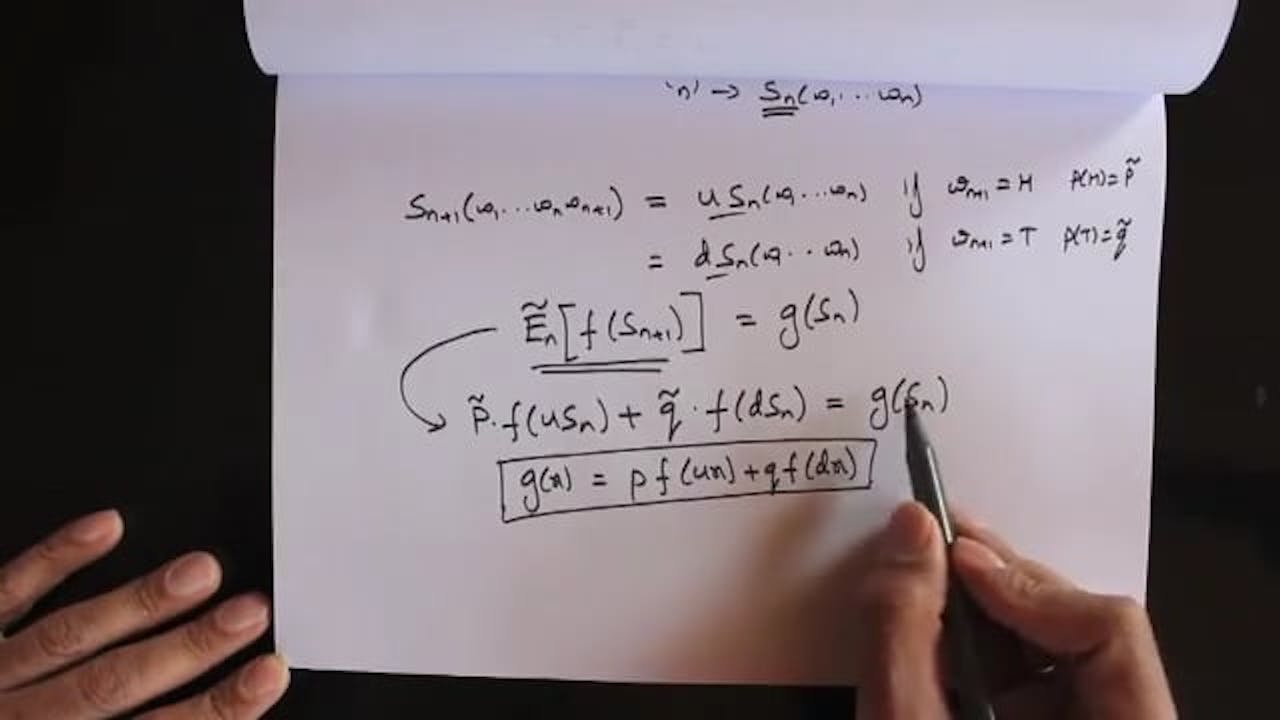 'n' → Sn(ω1...ωn)
Sn+1(ω1...ωnωn+1) = uSn(ω1...ωn) if ωn+1 = H P(H)=p̃
= dSn(ω1..ωn) if ωn+1 = T P(T)=q̃
Ẽn[f(Sn+1)] = g(Sn)
p̃.f(uSn) + q̃.f(dSn) = g(Sn)
g(x) = pf(ux)+qf(dx)